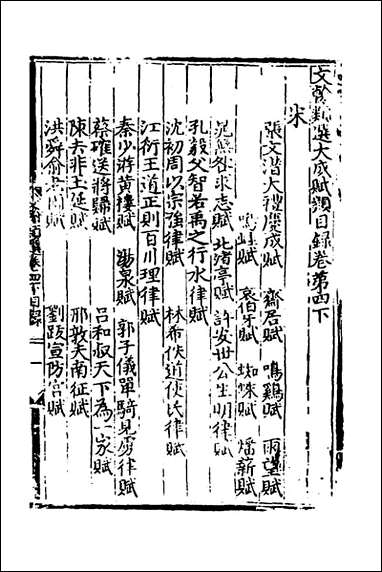 文翰類選大成賦類目錄卷第四下
宋
張文潛大禮慶成賦 齋居賦 鳴鷄賦 雨望賦
鳴蛙賦 哀伯牙賦 蜘蛛賦 燔薪賦
晁無咎求志賦 北渚亭賦 許安世公生明律賦
孔毅父智若禹之行水律賦
沈初周以宗強律賦 林希佚道使民律賦
江衍王道正則百川理律賦
秦少游黃樓賦 湯泉賦 郭子儀單騎見虜律賦
蔡確送將歸賦 呂和叔天下為一家賦
陳去非玉延賦 邢敦夫南征賦
洪舜俞老圃賦 劉跂宣防宮賦